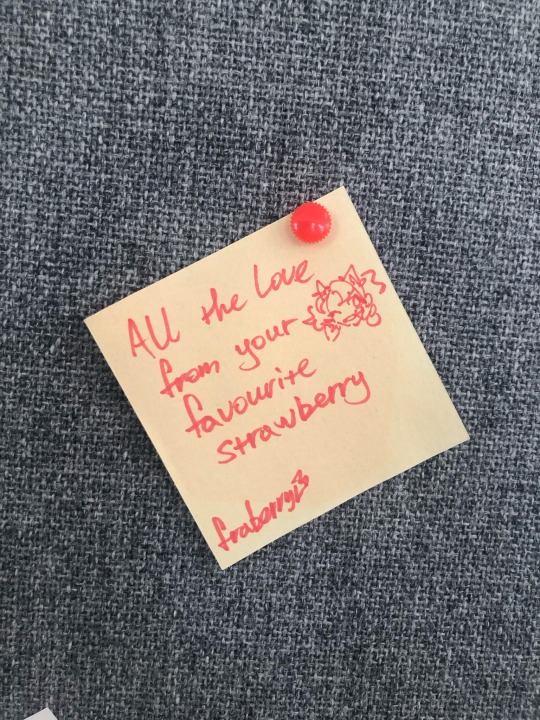 All the love
from your
favourite
strawberry
fraberry